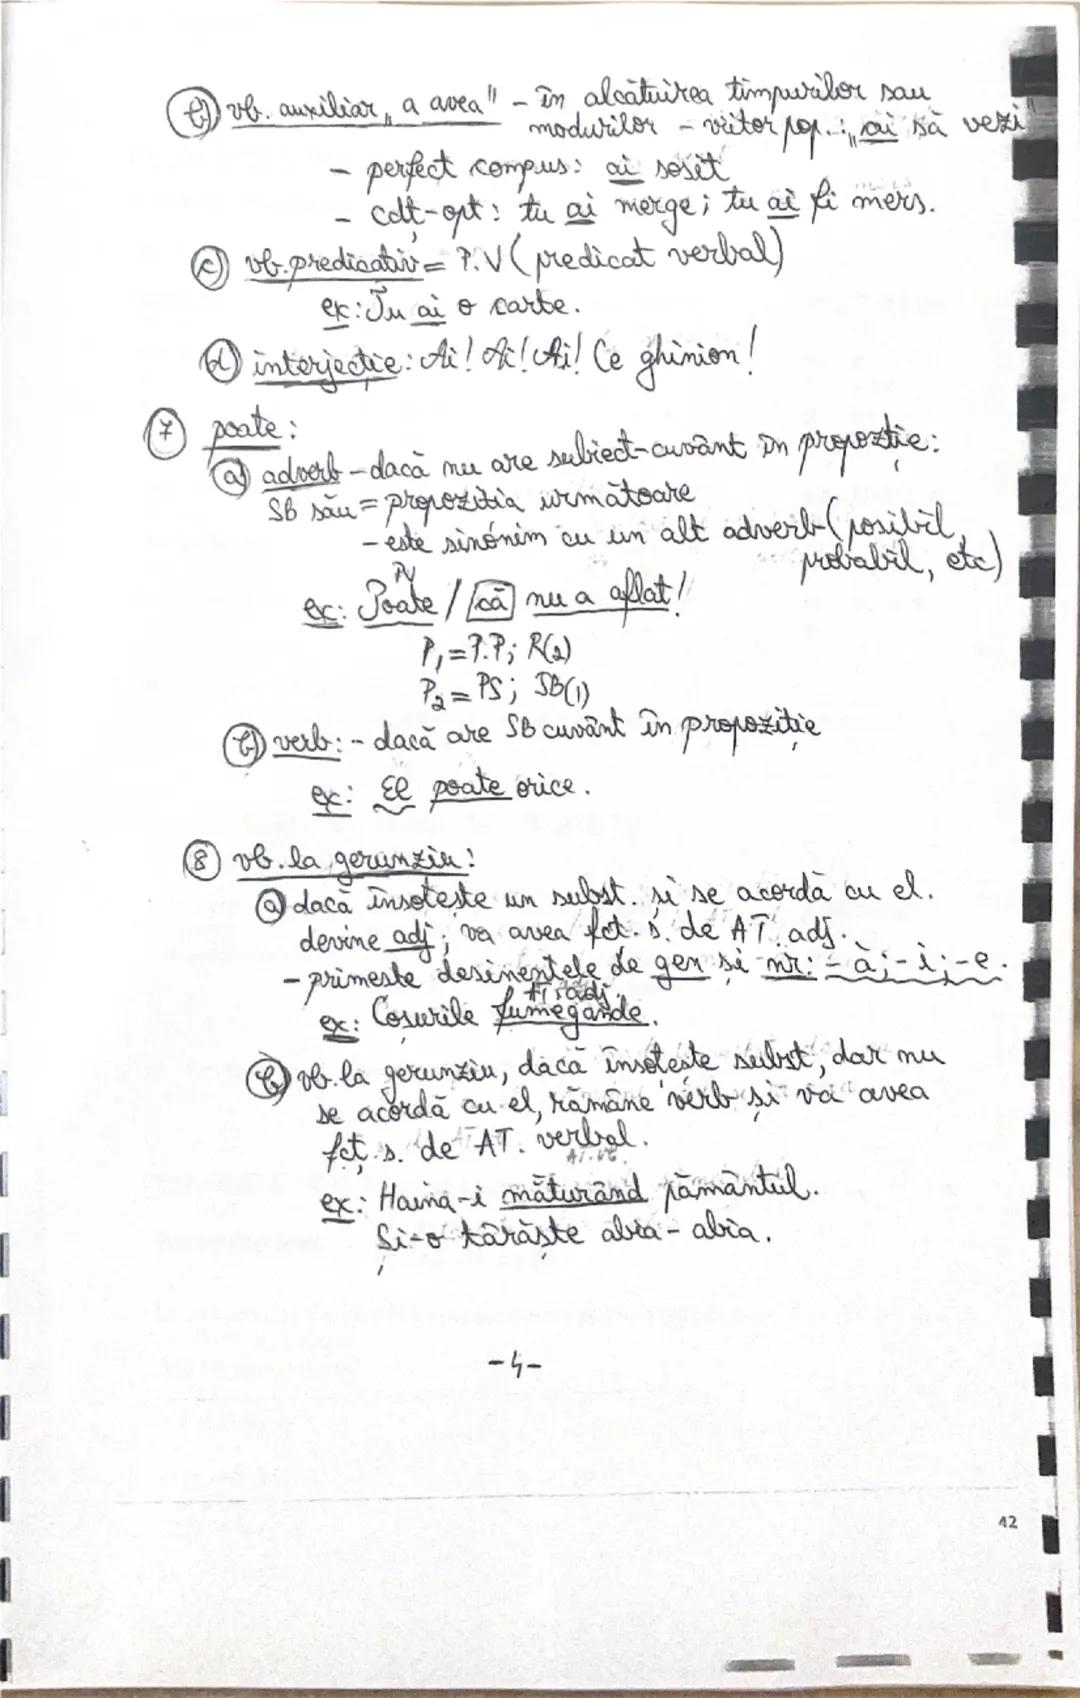 b) vb. auxiliar „a avea" - în alcătuirea timpurilor sau
modurilor - viitor pop.: „ai să vezi"
- perfect compus: ai sosit
- cdț-opt: tu ai merge; tu ai fi mers.
c) vb. predicativ = P.V (predicat verbal)
ex: Tu ai o carte.
d) interjecție: Ai! Ai! Ai! Ce ghinion!
7 poate:
a) adverb - dacă nu are subiect-cuvânt în propoziție:
SB său = propoziția următoare
- este sinonim cu un alt adverb (posibil,
probabil, etc)
PV
ex: Poate / că nu a aflat!
P1 = P.P; R(2)
P2 = PS; SB(1)
b) verb: - dacă are SB cuvânt în propoziție
ex: El poate orice.
8 vb. la gerunziu:
a) dacă însoțește un subst. și se acordă cu el.
devine adj; va avea fct. s. de AT. adj.
- primește desinențele de gen și nr: -ă; -i; -e.
AT. adj.
ex: Coșurile fumegânde.
b) vb. la gerunziu, dacă însoțește subst, dar nu
se acordă cu el, rămâne verb și va avea
fct. s. de AT. verbal.
AT. vb.
ex: Haina-i măturând pământul.
Și-o târăște abia - abia.
-4-
42